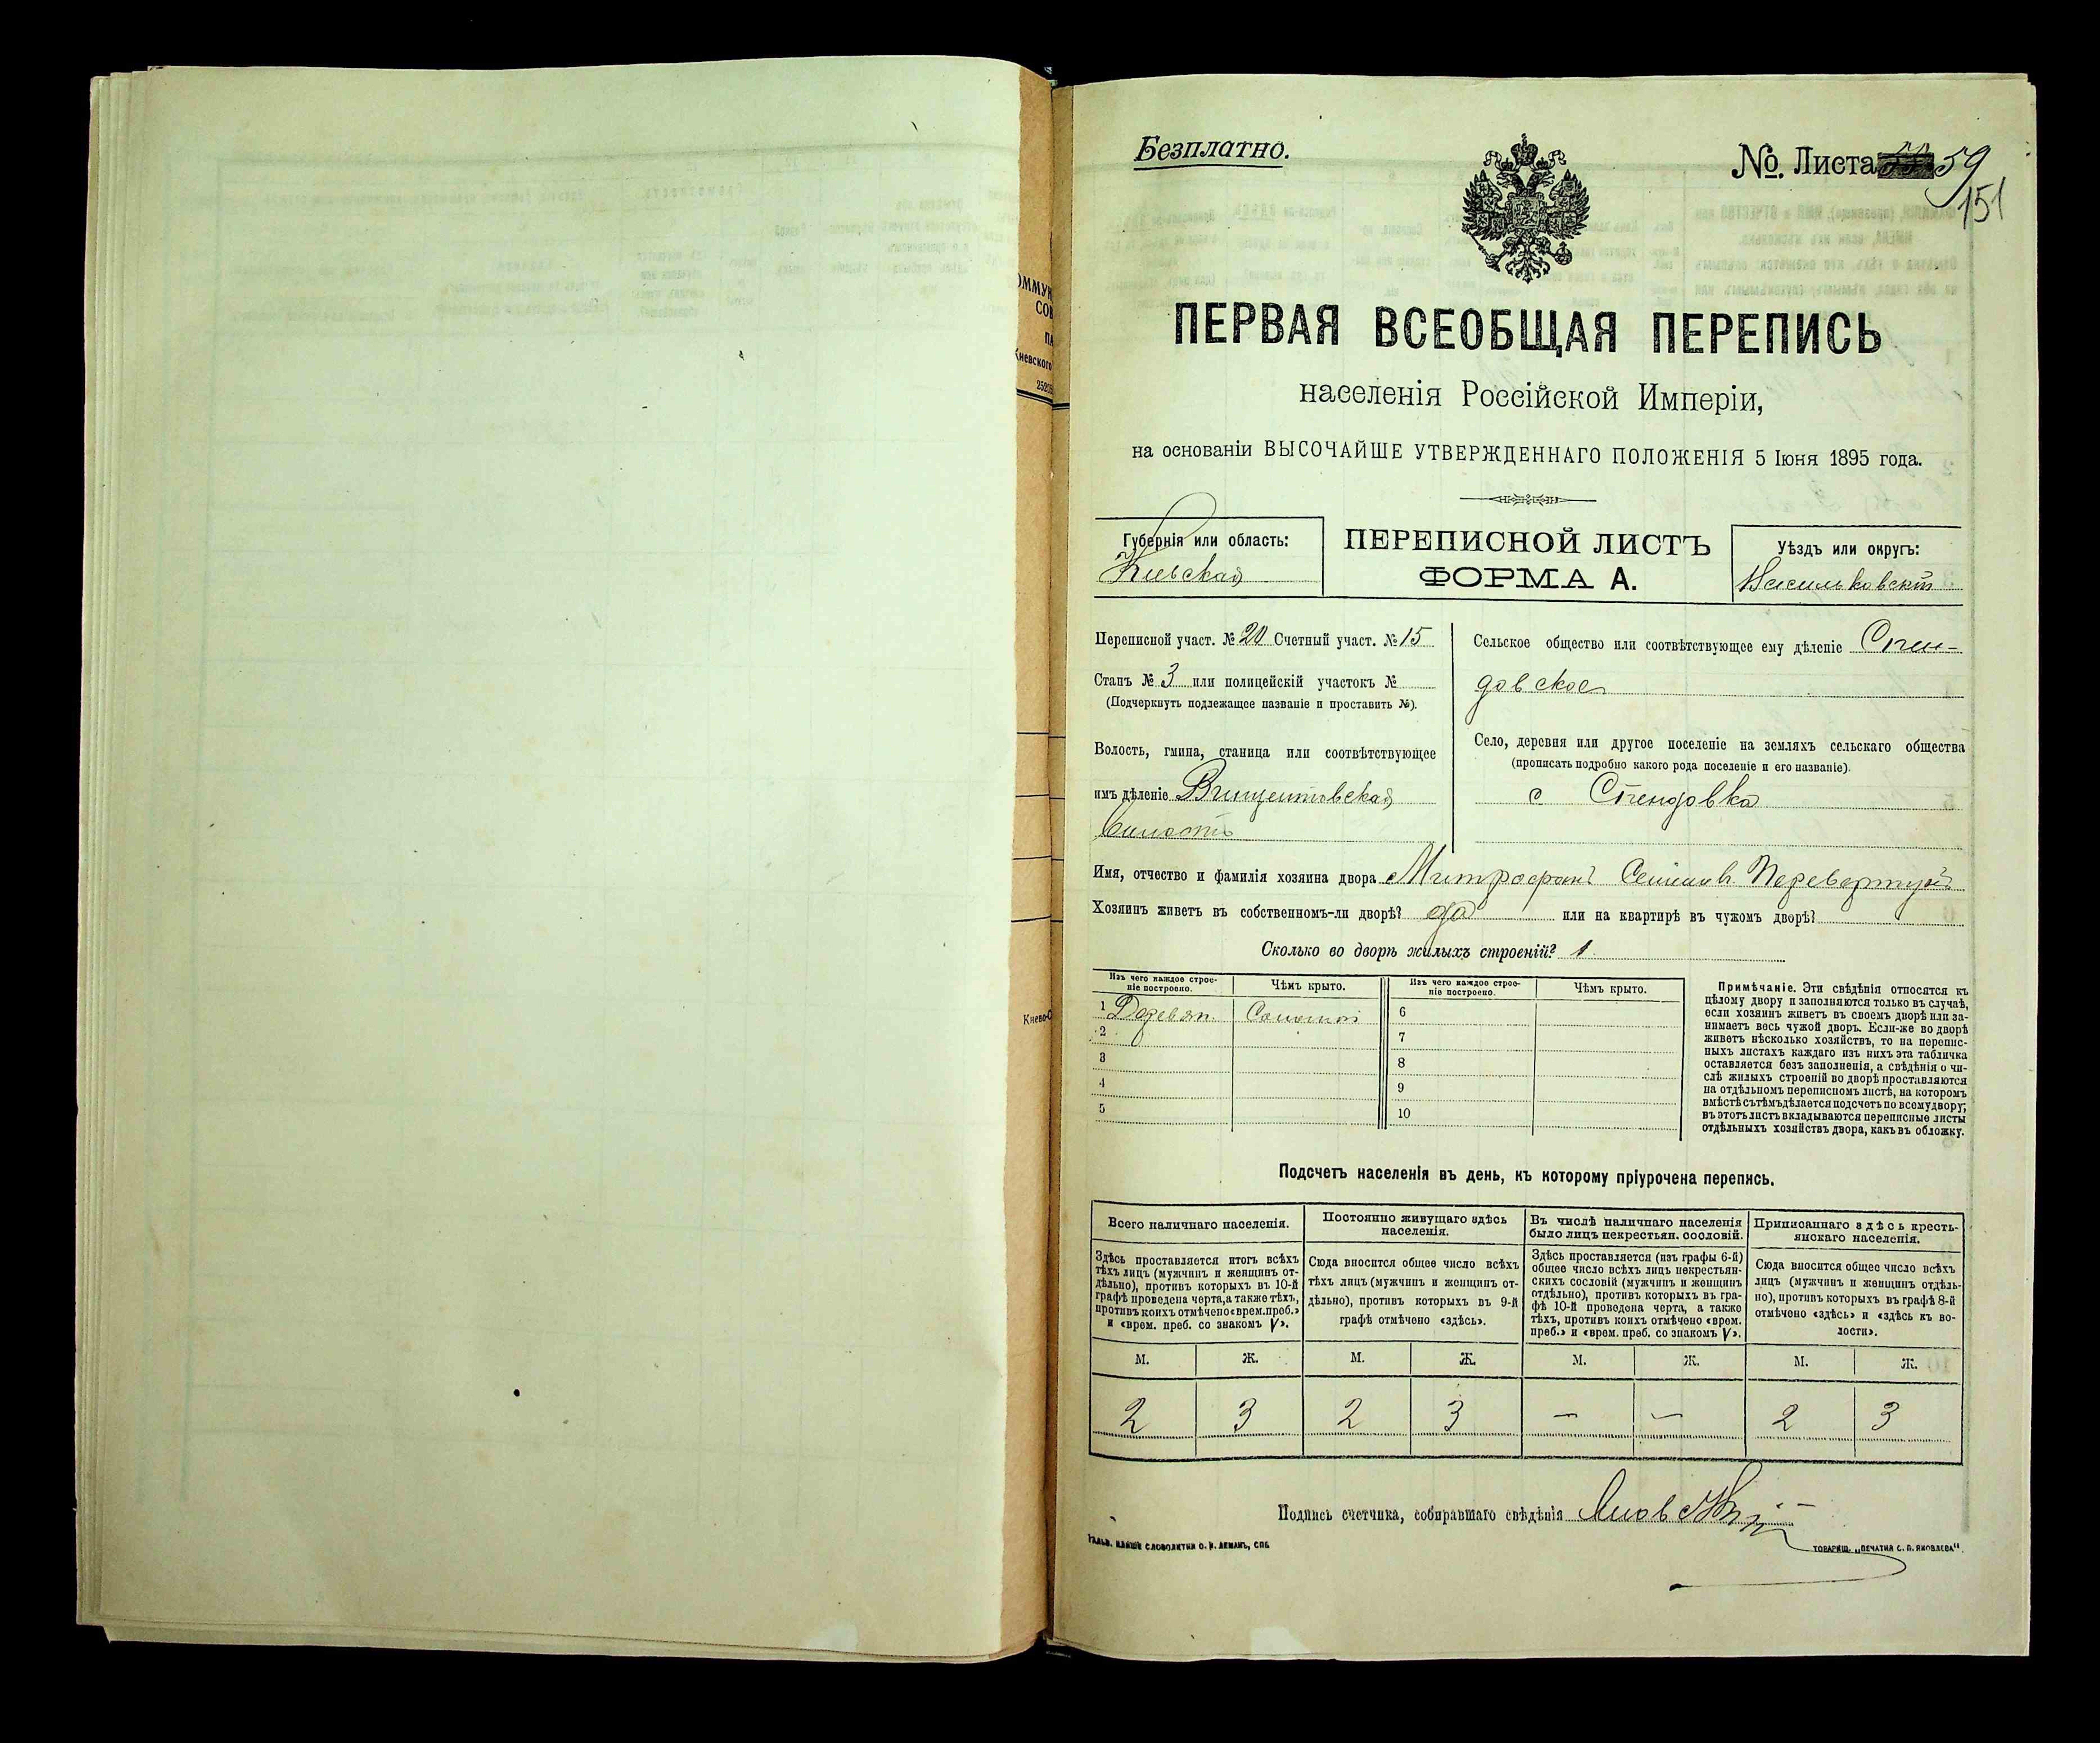 Безплатно.
№. Листа 59
151
ПЕРВАЯ ВСЕОБЩАЯ ПЕРЕПИСЬ
населенія Россійской Имперіи,
на основаніи ВЫСОЧАЙШЕ УТВЕРЖДЕННАГО ПОЛОЖЕНІЯ 5 Іюня 1895 года.
Губернія или область:
Кіевская
ПЕРЕПИСНОЙ ЛИСТЪ
ФОРМА А.
Уѣздъ или округъ:
Васильковскій
Переписной участ. № 20 Счетный участ. № 15
Станъ № 3 или полицейскій участокъ №
(Подчеркнуть подлежащее названіе и проставить №).
Волость, гмина, станица или соотвѣтствующее
имъ дѣленіе Винцентовская
волость
Сельское общество или соотвѣтствующее ему дѣленіе Степ-
довское
Село, деревня или другое поселеніе на земляхъ сельскаго общества
(прописать подробно какого рода поселеніе и его названіе).
с
Имя, отчество и фамилія хозяина двора Митрофанъ Семеновъ
Хозяинъ живетъ въ собственномъ-ли дворѣ? да или на квартирѣ въ чужомъ дворѣ?
Сколько во дворѣ жилыхъ строеній? 1
Изъ чего каждое строе-
ніе построено.
Чѣмъ крыто.
Изъ чего каждое строе-
ніе построено.
Чѣмъ крыто.
1 Деревян. Соломой 6
2 7
3 8
4 9
5 10
Примѣчаніе. Эти свѣдѣнія относятся къ
цѣлому двору и заполняются только въ случаѣ,
если хозяинъ живетъ въ своемъ дворѣ или за-
нимаетъ весь чужой дворъ. Если-же во дворѣ
живетъ нѣсколько хозяйствъ, то на перепис-
ныхъ листахъ каждаго изъ нихъ эта табличка
оставляется безъ заполненія, а свѣдѣнія о чи-
слѣ жилыхъ строеній во дворѣ проставляются
на отдѣльномъ переписномъ листѣ, на которомъ
вмѣстѣ съ тѣмъ дѣлается подсчетъ по всему двору;
въ этотъ листъ вкладываются переписные листы
отдѣльныхъ хозяйствъ двора, какъ въ обложку.
Подсчетъ населенія въ день, къ которому пріурочена перепись.
Всего наличнаго населенія.
Здѣсь проставляется итогъ всѣхъ
тѣхъ лицъ (мужчинъ и женщинъ от-
дѣльно), противъ которыхъ въ 10-й
графѣ проведена черта, а также тѣхъ,
противъ коихъ отмѣчено «врем. преб.»
и «врем. преб. со знакомъ V».
Постоянно живущаго здѣсь
населенія.
Сюда вносится общее число всѣхъ
тѣхъ лицъ (мужчинъ и женщинъ от-
дѣльно), противъ которыхъ въ 9-й
графѣ отмѣчено «здѣсь».
Въ числѣ наличнаго населенія
было лицъ некрестьян. сословій.
Здѣсь проставляется (изъ графы 6-й)
общее число всѣхъ лицъ некрестьян-
скихъ сословій (мужчинъ и женщинъ
отдѣльно), противъ которыхъ въ гра-
фѣ 10-й проведена черта, а также
тѣхъ, противъ коихъ отмѣчено «врем.
преб.» и «врем. преб. со знакомъ V».
Приписаннаго здѣсь кресть-
янскаго населенія.
Сюда вносится общее число всѣхъ
лицъ (мужчинъ и женщинъ отдѣль-
но), противъ которыхъ въ графѣ 8-й
отмѣчено «здѣсь» и «здѣсь къ во-
лости».
М. Ж. М. Ж. М. Ж. М. Ж.
2 3 2 3 — — 2 3
Подпись счетчика, собиравшаго свѣдѣнія
ТОВАРИЩ. „ПЕЧАТНЯ С. П. ЯКОВЛЕВА“.